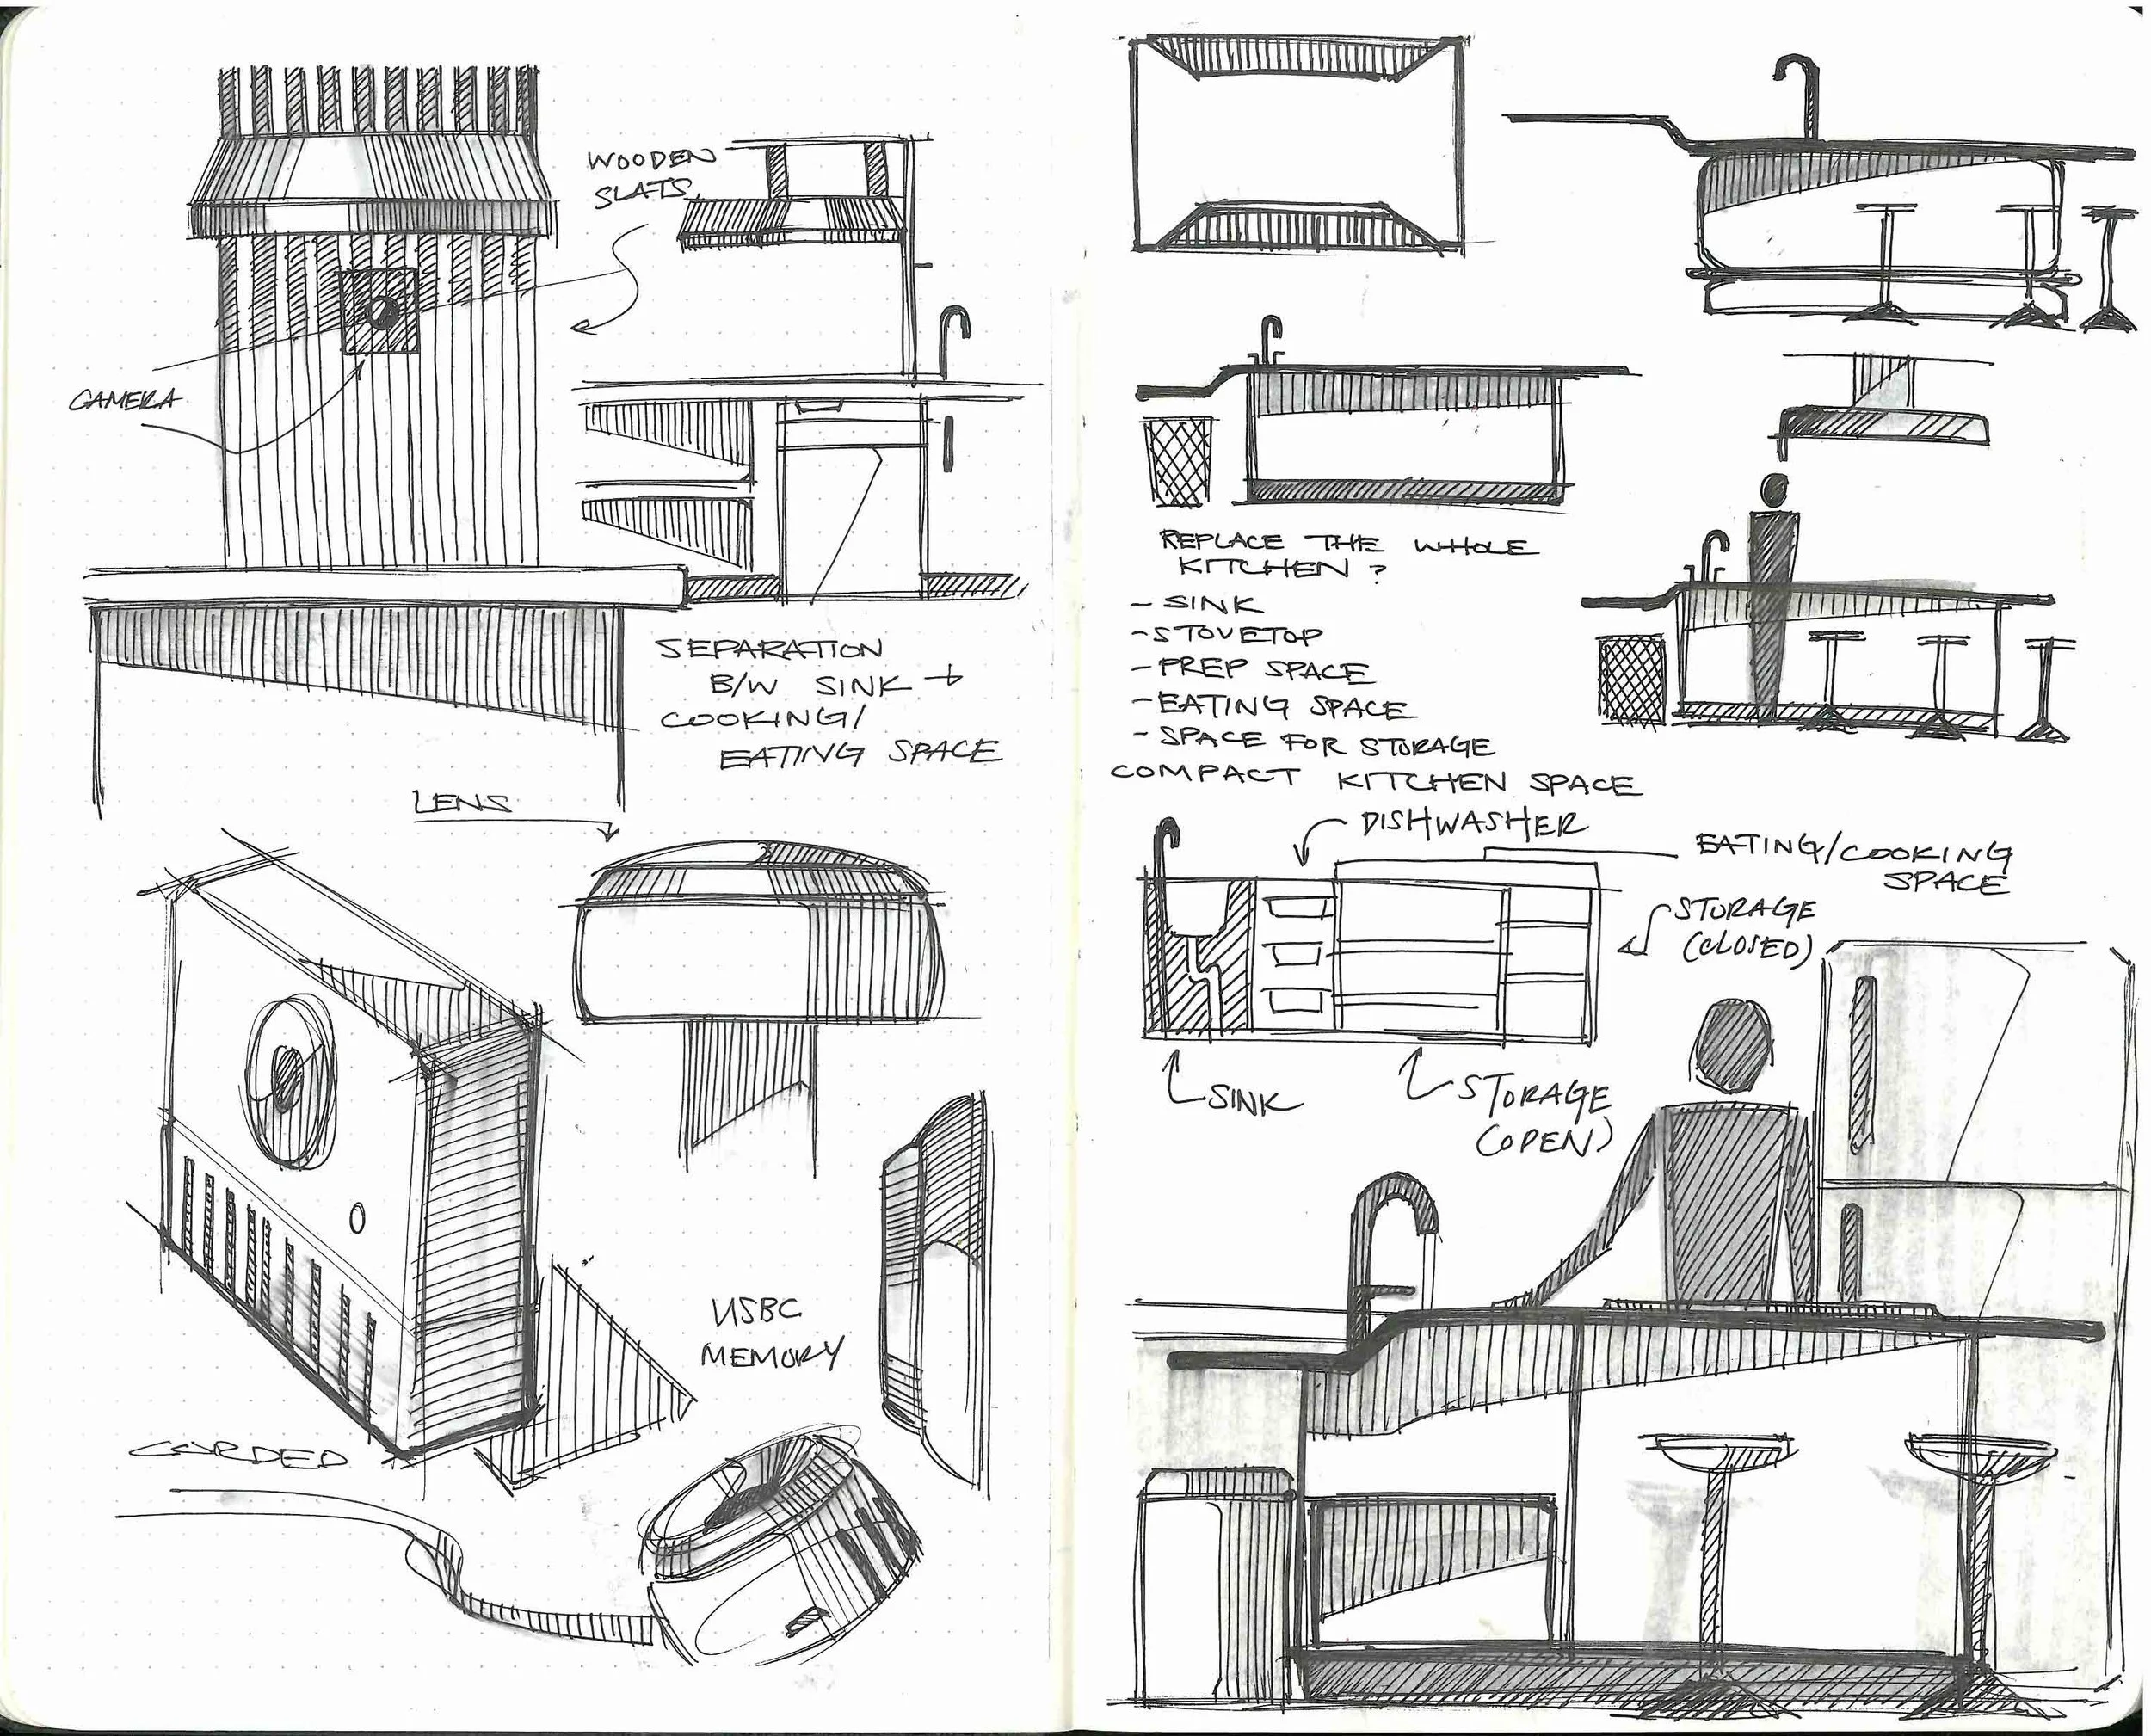 WOODEN
SLATS
CAMERA
SEPARATION
B/W SINK +
COOKING/
EATING SPACE
LENS
USBC
MEMORY
CORDED
REPLACE THE WHOLE
KITCHEN?
- SINK
- STOVETOP
- PREP SPACE
- EATING SPACE
- SPACE FOR STORAGE
COMPACT KITCHEN SPACE
DISHWASHER
EATING/COOKING
SPACE
STORAGE
(CLOSED)
SINK
STORAGE
(OPEN)